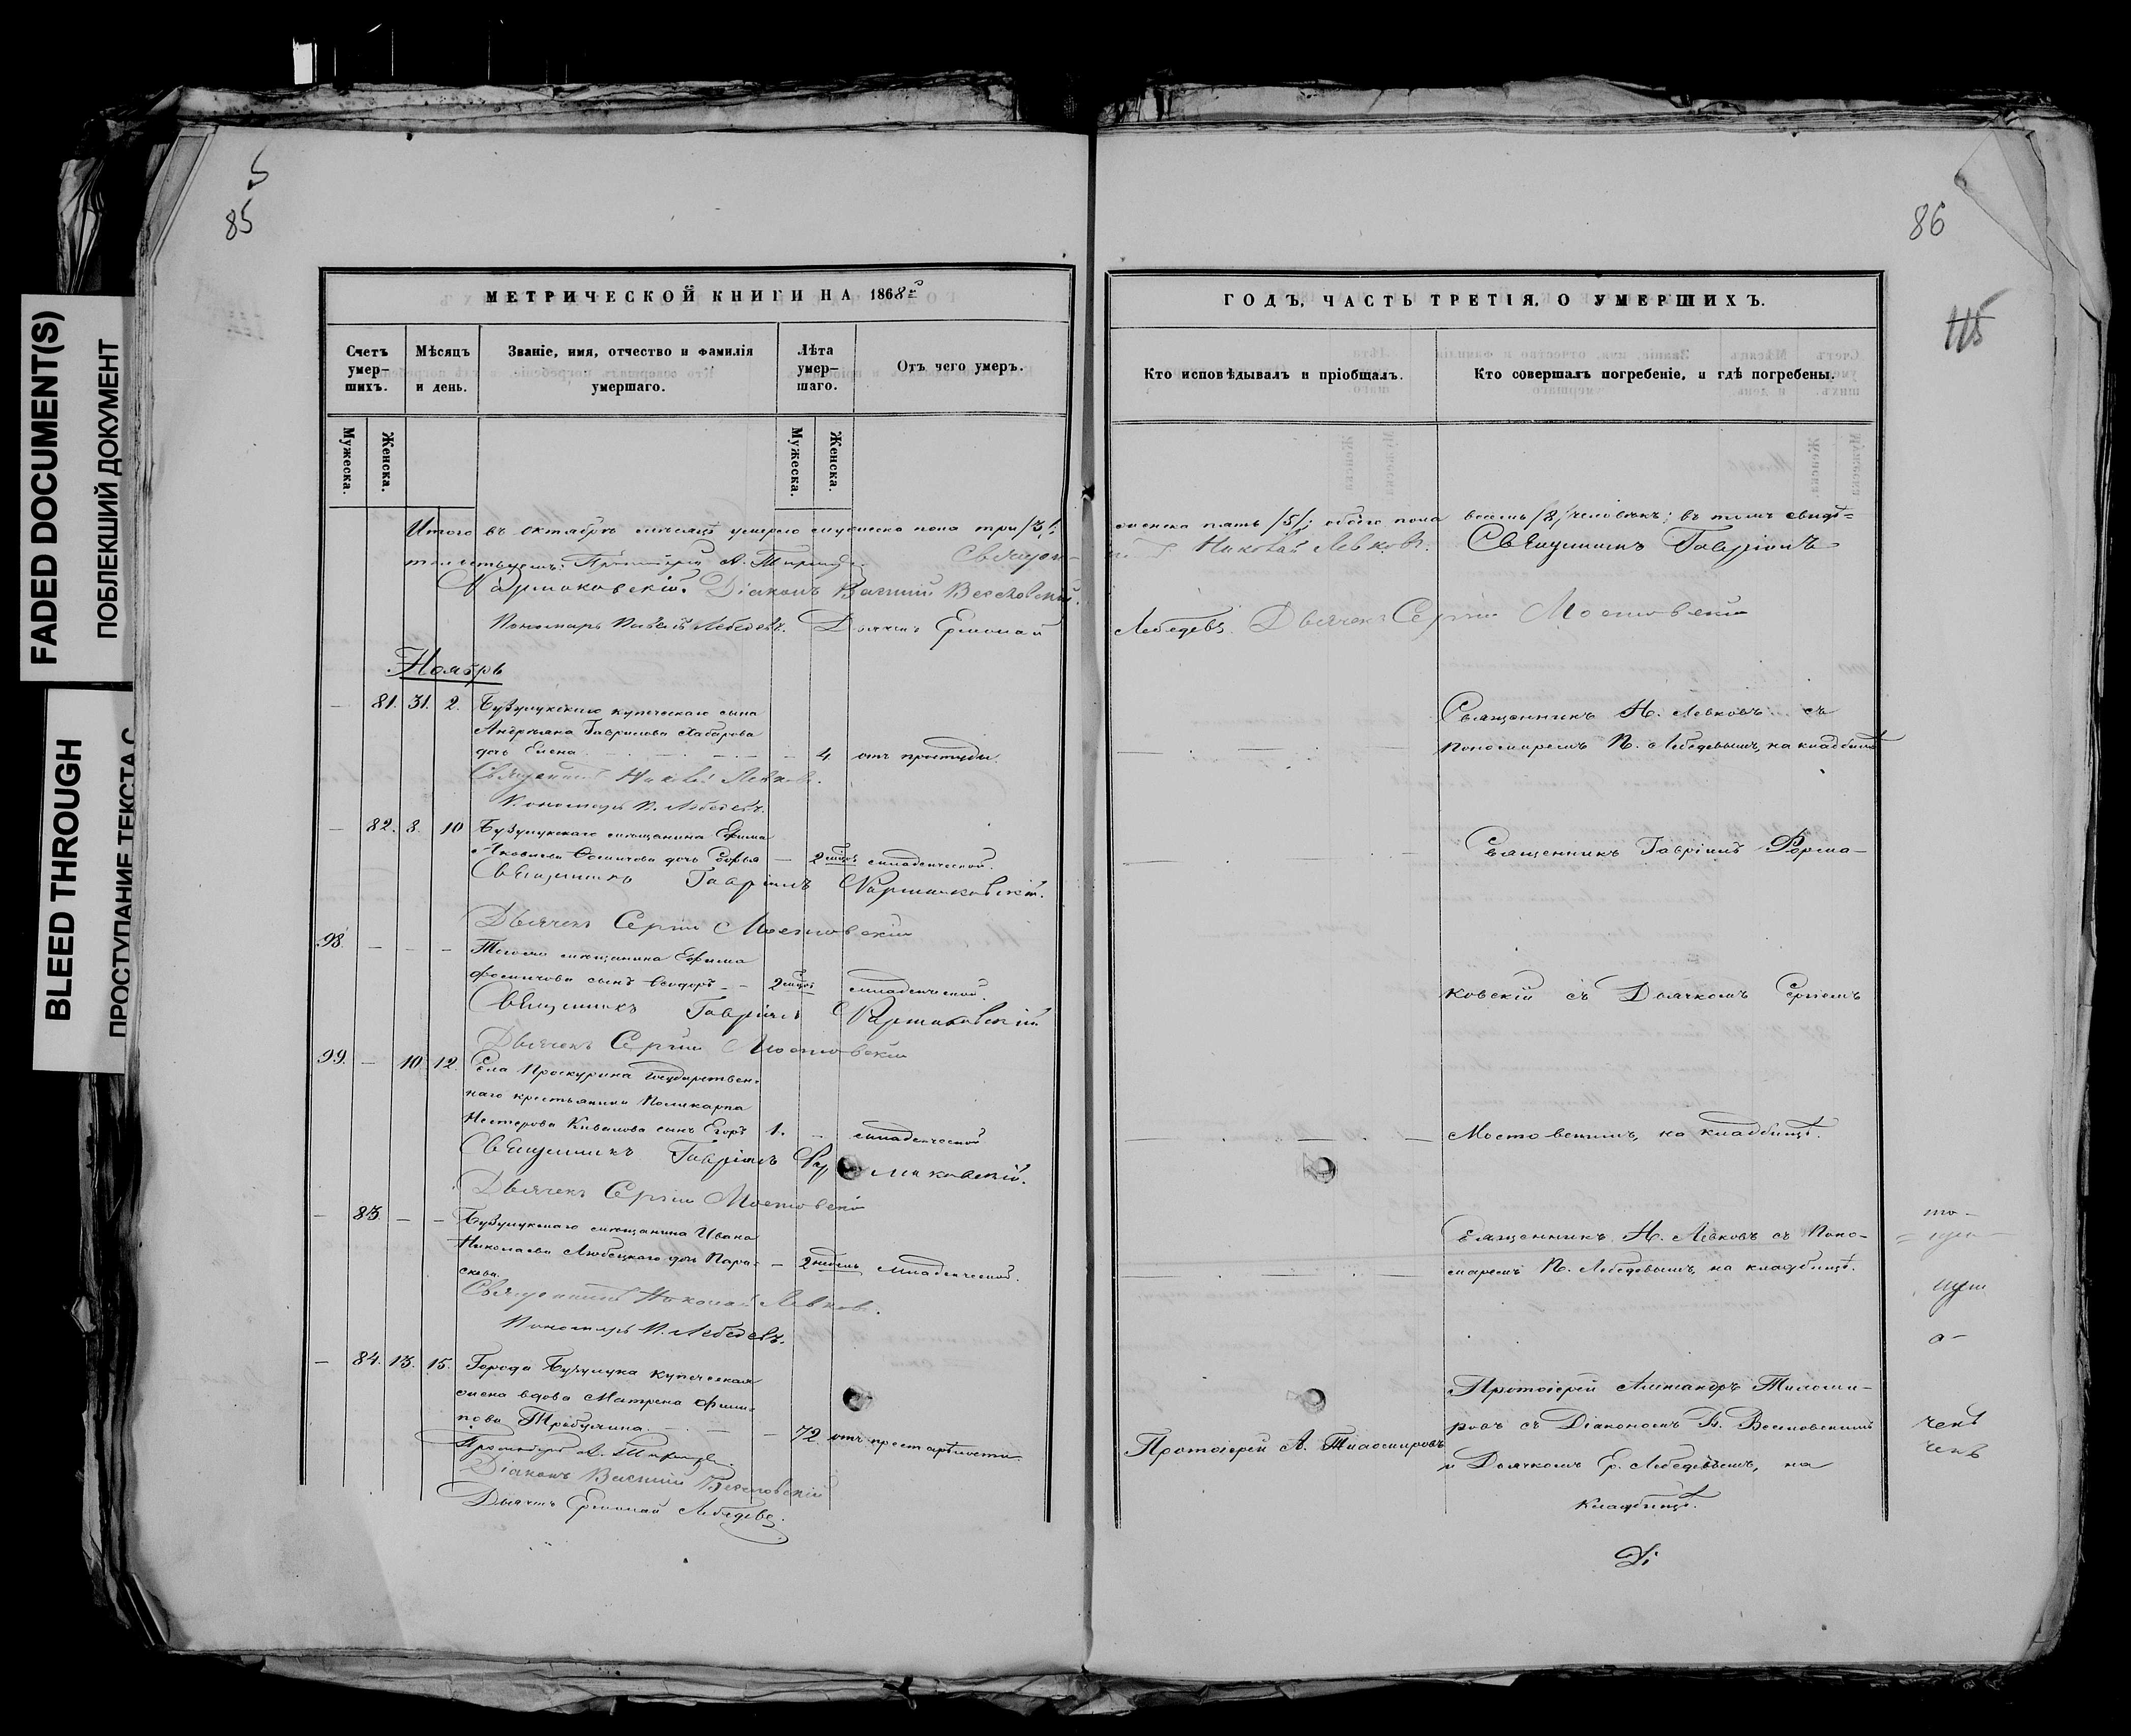 FADED DOCUMENT(S)
ПОБЛЕКШИЙ ДОКУМЕНТ
BLEED THROUGH
ПРОСТУПАНИЕ ТЕКСТА С
5
85
МЕТРИЧЕСКОЙ КНИГИ НА 1868й
Счетъ умер-шихъ.
Мѣсяцъ и день.
Званіе, имя, отчество и фамилія умершаго.
Лѣта умер-шаго.
Отъ чего умеръ.
Мужеска.
Женска.
Мужеска.
Женска.
Итого въ октябрѣ мѣсяцѣ умерло мужеска пола три /3/;
Протоіерей А.
Діаконъ Василій Веселовскій.
Пономарь Павелъ Лебедевъ. Дьячекъ Ермолай
Ноябрь
— 81. 31. 2. Бузулукскаго купеческаго сына
Андреяна Гаврилова Хабарова
дочь Елена — 4. отъ простуды.
Священникъ Николай Левковъ.
Пономарь П. Лебедевъ.
— 82. 8. 10 Бузулукскаго мѣщанина Ефима
Яковлева Фомичова дочь Софья — 2 мѣсц. младенческой.
Священникъ Гавріилъ
Дьячекъ Сергій Мостовскій
98. — — — Тогоже мѣщанина Ефима
Фомичова сынъ Ѳеодоръ — 2 мѣсц. младенческой.
Священникъ Гавріилъ
Дьячекъ Сергій Мостовскій
99. — 10 12. Села Проскурина Государствен-
наго крестьянина Поликарпа
Нестерова сынъ Егоръ 1. — младенческой
Священникъ Гавріилъ
Дьячекъ Сергій Мостовскій
— 83. — — Бузулукскаго мѣщанина Ивана
Николаева Любецкаго дочь Пара-
скева. — 2 недѣль младенческой.
Священникъ Николай Левковъ.
Пономарь П. Лебедевъ.
— 84. 13. 15. Города Бузулука купеческая
жена вдова Матрена Филип-
пова — 72 отъ престарѣлости.
Протоіерей А.
Діаконъ Василій Веселовскій
Дьячекъ Ермолай Лебедевъ.
86
115
ГОДЪ, ЧАСТЬ ТРЕТІЯ, О УМЕРШИХЪ.
Кто исповѣдывалъ и пріобщалъ.
Кто совершалъ погребеніе, и гдѣ погребены.
женска пять /5/; обоего пола восемь /8/ человѣкъ; въ томъ свидѣ-
Николай Левковъ. Священникъ Гавріилъ
Лебедевъ. Дьячекъ Сергій Мостовскій
Священникъ Н. Левковъ съ
Пономаремъ П. Лебедевымъ, на кладбищѣ
Священникъ Гавріилъ Форма-
ковскій съ Дьячкомъ Сергіемъ
Мостовскимъ, на кладбищѣ.
Священникъ Н. Левковъ съ Поно-
маремъ П. Лебедевымъ, на кладбищѣ.
Протоіерей А. Тихомировъ
Протоіерей Александръ Тихоми-
ровъ съ Діакономъ В. Веселовскимъ
и Дьячкомъ Ер. Лебедевымъ, на
кладбищѣ.